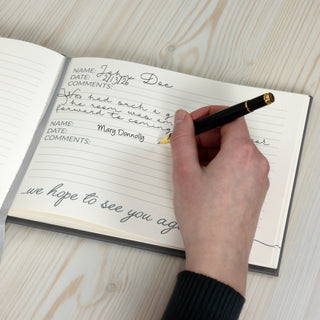 NAME: John Doe
DATE: 2/13/20
COMMENTS:
We had such a g
The room was am
forward to coming
NAME: Mary Donnolly
DATE:
COMMENTS:
...we hope to see you aga